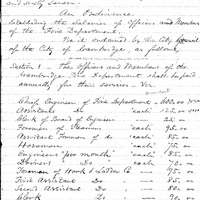 and Sixty Seven.
An Ordinance
Establishing the Salaries of Officers and Members
of the Fire Department.
Be it ordained by the City Council
of the City of Cambridge, as follows,
Section 1. The Officers and Members of the
Cambridge Fire Department shall be paid
annually for their services - Viz
Chief Engineer of Fire Department,
Assistants Do "each" 125.00
Clerk of Board of Engineers 25.
Foremen of Steamers "each" 95.
Assistant Foremen Do "each" 85.
Hosemen "each" 75.
Engineers "per month" "each" 85.
Stokers Do "each" 70.
Foremen of Hook & Ladder Co 95.
First Assistant Do 85.
Second Assistant Do 80.
Clerk Do 90.